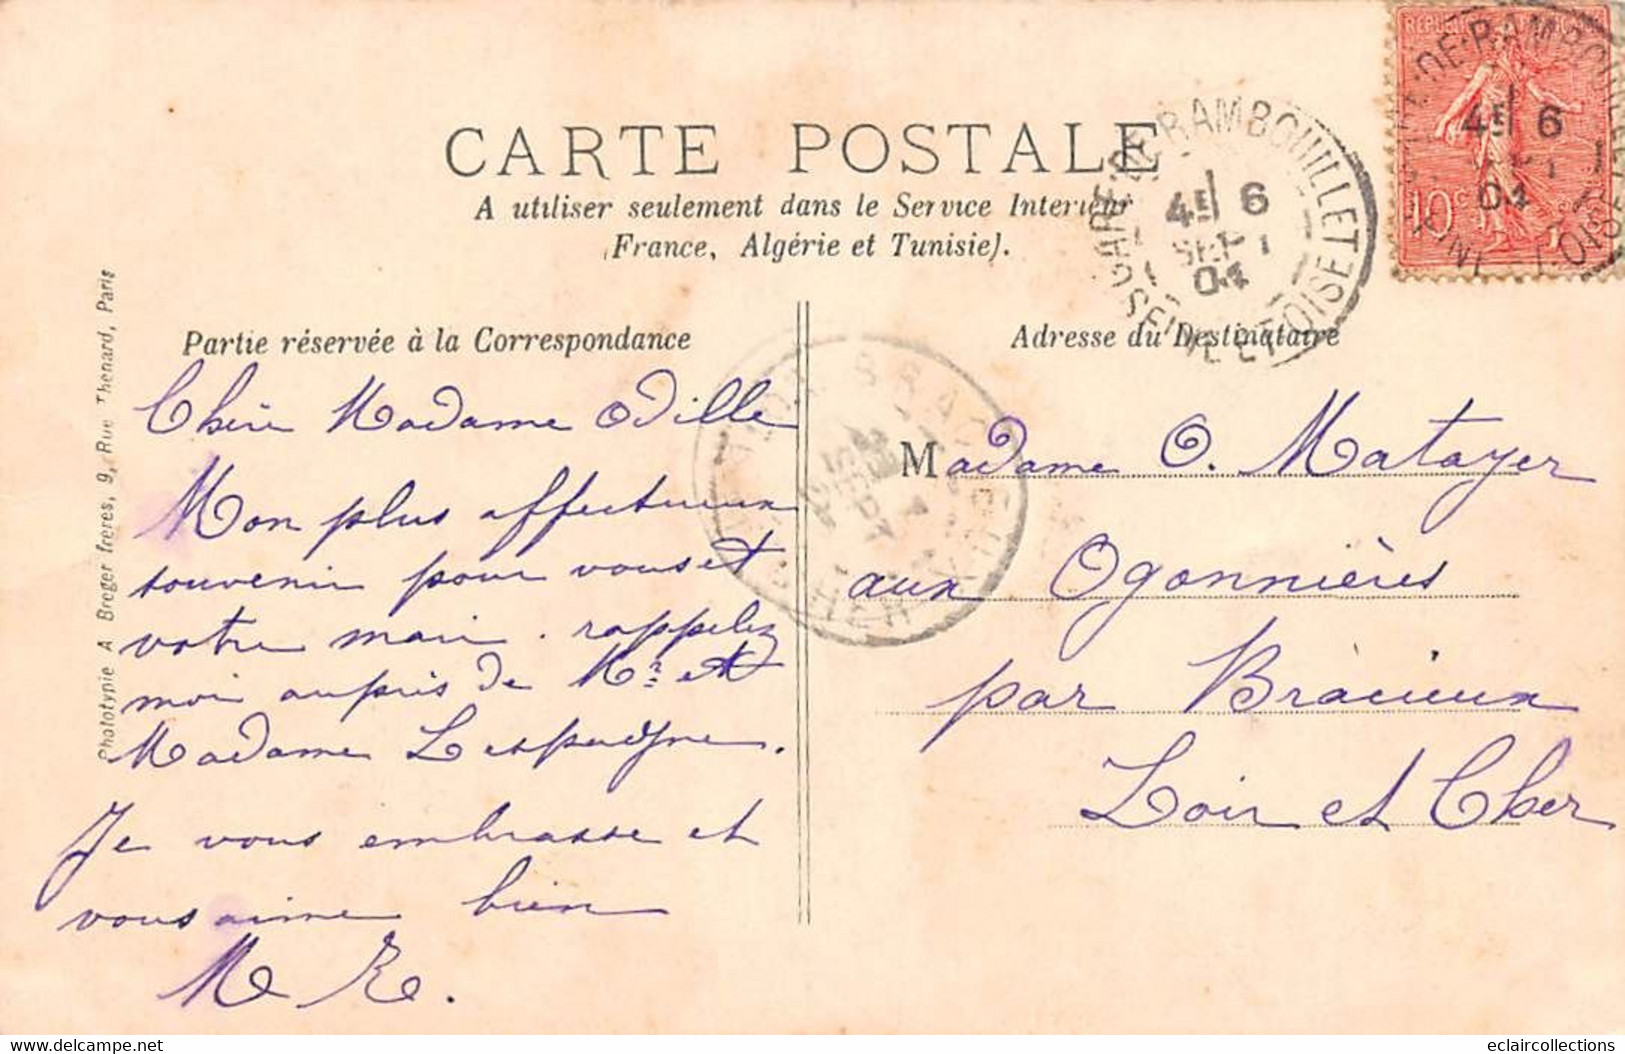 CARTE POSTALE
A utiliser seulement dans le Service Interieur
(France, Algérie et Tunisie).
Partie réservée à la Correspondance
Adresse du Destinataire
Phototypie A Breger frères, 9, Rue Thénard, Paris
GARE DE RAMBOUILLET
4E 6
SEPT
04
SEINE ET OISE
10c
Chère Madame Odille
Mon plus affectueux
souvenir pour vous et
votre mari. rappelez
moi auprès de Mr et
Madame Lespagne.
Je vous embrasse et
vous aime bien
M R.
Madame O. Matayer
aux Ogonnières
par Bracieux
Loir et Cher
www.delcampe.net
eclaircollections